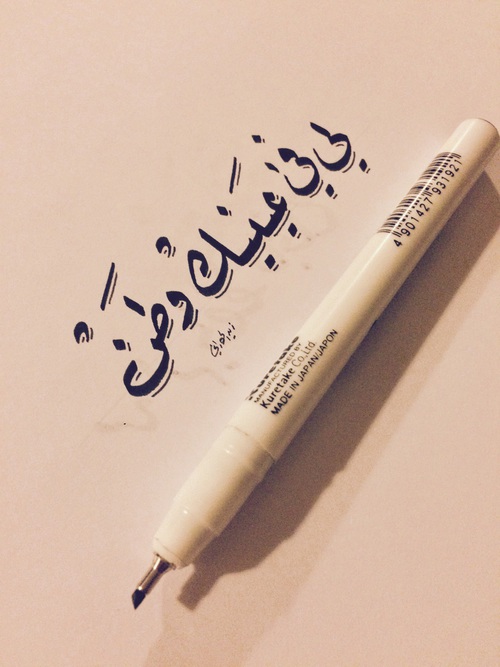 لي في عينيك وطنٌ
4 901427 931921
MANUFACTURED BY
Kuretake Co.,Ltd.
MADE IN JAPAN/JAPON